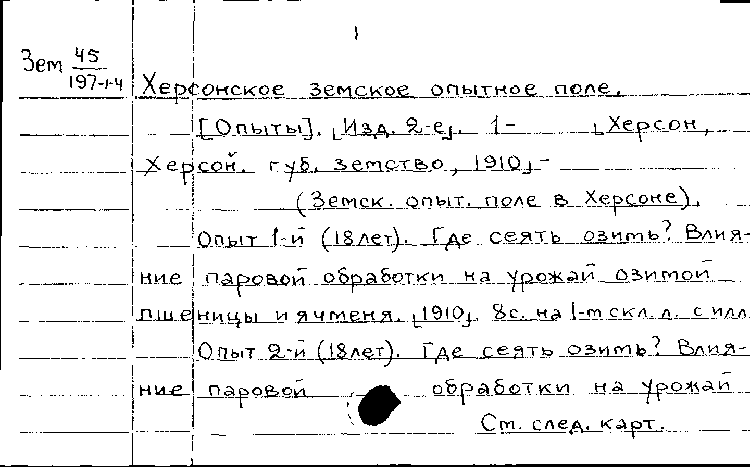 1
Зем 45
197-1-4
Херсонское земское опытное поле.
[Опыты]. ⌊Изд. 2-е⌋. 1- ⌊Херсон,
Херсон. губ. земство, 1910⌋-
(Земск. опыт. поле в Херсоне).
Опыт 1-й (18лет). Где сеять озить? Влия-
ние паровой обработки на урожай озимой
пшеницы и ячменя. ⌊1910⌋. 8с. на 1-м скл. л. с илл.
Опыт 2-й (18лет). Где сеять озить? Влия-
ние паровой обработки на урожай
См. след. карт.